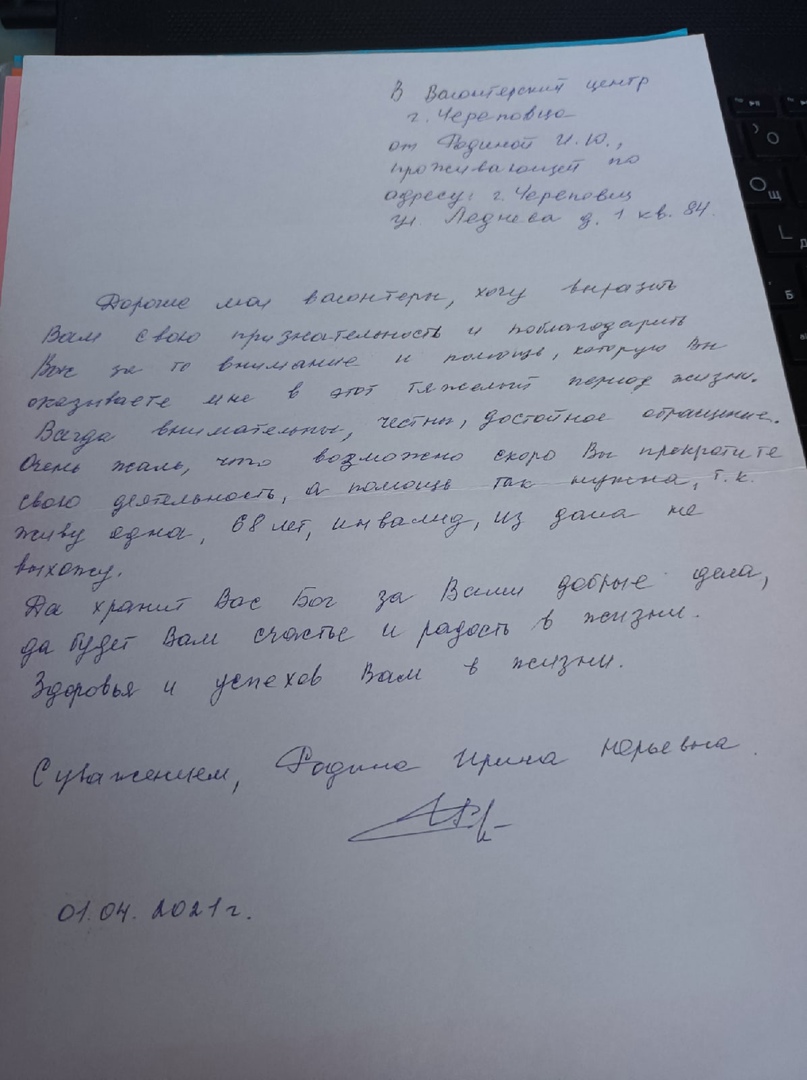 В Волонтерский центр
г. Череповца
от Фадиной И.Ю.,
проживающей по
адресу: г. Череповец
ул. Леднева д. 1 кв. 84.
Дорогие мои волонтеры, хочу выразить
Вам свою признательность и поблагодарить
Вас за то внимание и помощь, которую Вы
оказываете мне в этот тяжелый период жизни.
Всегда внимательны, честны, достойное обращение.
Очень жаль, что возможно скоро Вы прекратите
свою деятельность, а помощь так нужна, т.к.
живу одна, 68 лет, инвалид, из дома не
выхожу.
Да хранит Вас Бог за Ваши добрые дела,
да будет Вам счастье и радость в жизни.
Здоровья и успехов Вам в жизни.
С уважением, Фадина Ирина Юрьевна.
01.04.2021г.